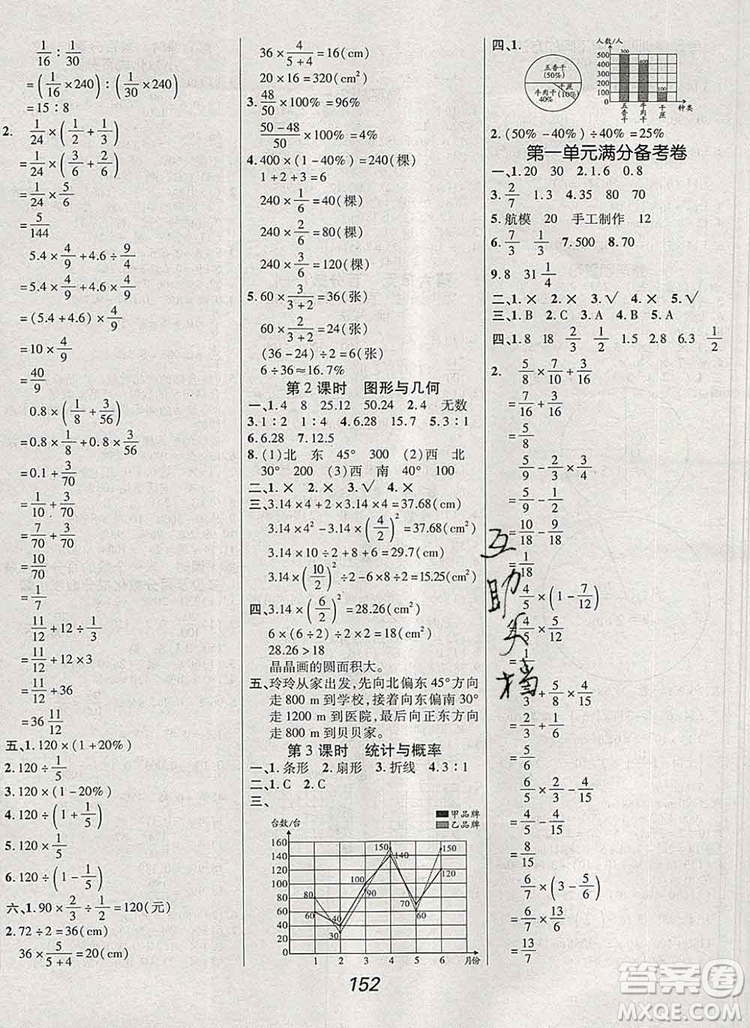 1/15 : 1/30
=(1/15×240) : (1/30×240)
=15 : 8
2. 1/24×(1/2+1/3)
=1/24×(3/6+2/6)
=1/24×5/6
=5/144
5.4×4/9+4.6÷9/4
=5.4×4/9+4.6×4/9
=(5.4+4.6)×4/9
=10×4/9
=40/9
0.8×(1/8+3/56)
=0.8×1/8+0.8×3/56
=0.1+3/70
=1/10+3/70
=7/70+3/70
=10/70
=1/7
11/12+12÷1/3
=11/12+12×3
=11/12+36
=36 11/12
五、1.120×(1+20%)
2.120÷1/5
3.120×(1-20%)
4.120÷(1+1/5)
5.120×1/5
6.120÷(1-1/5)
六、1.90×2/3÷1/2=120(元)
2.72÷2=36(cm)
36×5/(5+4)=20(cm)
36×4/(5+4)=16(cm)
3.48/50×100%=96%
(50-48)/50×100%=4%
4.400×(1-40%)=240(棵)
1+2+3=6
240×1/6=40(棵)
240×2/6=80(棵)
240×3/6=120(棵)
5.60×3/(3+2)=36(张)
60×2/(3+2)=24(张)
(36-24)÷2=6(张)
6÷36≈16.7%
第2课时 图形与几何
一、1.4 8 25.12 50.24 2.4 无数
3.1:2 1:4 4.6.28 5.3:1
6.6.28 7.12.5
8.(1)北 东 45° 300 (2)西 北
30° 200 (3)西 南 40° 100
二、1.× 2.× 3.√ 4.×
三、3.14×4×2+3.14×4=37.68(cm)
3.14×4²-3.14×(4/2)²=37.68(cm²)
3.14×10÷2+8+6=29.7(cm)
3.14×(10/2)²÷2-6×8÷2=15.25(cm²)
四、3.14×(6/2)²=28.26(cm²)
6×(6÷2)÷2×2=18(cm²)
28.26>18
晶晶画的圆面积大。
五、玲玲从家出发,先向北偏东45°方向
走800 m到学校,接着向南偏东30°
走1200 m到医院,最后向正东方向
走800 m到贝贝家。
第3课时 统计与概率
一、1.条形 2.扇形 3.折线 4.3:1
二、1.C 2.C
三、
台数/台
甲品牌
乙品牌
160
140
120
100
80
60
40
20
0
80 60 40 30 100 90 150 140 70 60 150 120
1 2 3 4 5 6 月份
四、1.
五香干(50%)
牛肉干40%
干蔬(10%)
人数/人
500
450
400
350
300
250
200
150
100
50
0
500 400 100
五香干 牛肉干 干蔬 种类
2.(50%-40%)÷40%=25%
第一单元满分备考卷
一、1.20 30 2.1.6 0.8
3.2/7 1.8 4.35 80
5.航模 20 手工制作 12
6.7/10 1/3 7.500 8.70
9.8 31 1/4
二、1.× 2.√ 3.× 4.× 5.√
三、1.B 2.C 3.A 4.C 5.A
四、1.8 18 2/3 1/2 1.5 2.8 6.3
2. 5/8×7/16+3/16
=7/16+3/16
=5/8
5/9-5/9×9/10
=5/9-1/2
=10/18-9/18
=1/18
4/5×(1-7/12)
=4/5×5/12
=1/3
=2/3+5/9×3/5
=2/3+1/3
6/7×(3-5/6)
=6/7×13/6
=13/7
互助头档
152
答案圈
MXQE.COM